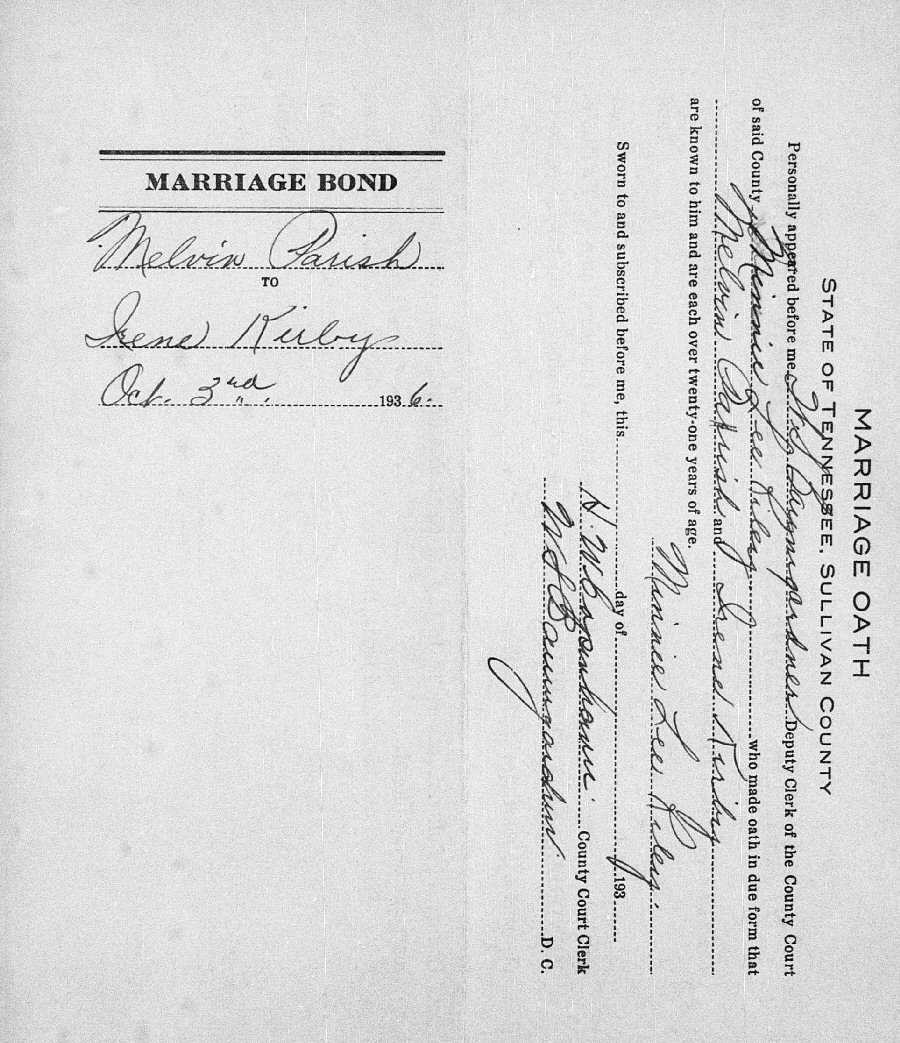 MARRIAGE BOND
Melvin Parish
TO
Irene Kirby
Oct. 3rd 1936.
MARRIAGE OATH
STATE OF TENNESSEE, SULLIVAN COUNTY
Personally appeared before me Deputy Clerk of the County Court
of said County Minnie Lee Riley who made oath in due form that
Melvin Parrish and Irene Kirby
are known to him and are each over twenty-one years of age.
Minnie Lee Riley.
Sworn to and subscribed before me, this day of 193
County Court Clerk
D. C.